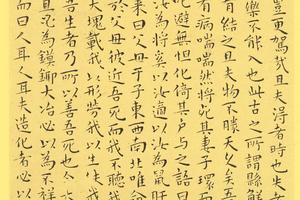 豈更駕哉且夫得者時也失者
樂不能入也此古之所謂縣解
有結之且夫物不勝天久矣吾
有病喘喘然將死其妻子環而
叱避無怛化倚其戶與之語曰
汝為將奚以汝適以汝為鼠肝
來曰父母于子東西南北唯命
於父母彼近吾死而我不聽我
大塊載我以形勞我以生佚我
吾生者乃所以善吾死也今大
且必為鏌鋣大冶必以為不
而曰人耳人耳夫造化者必以